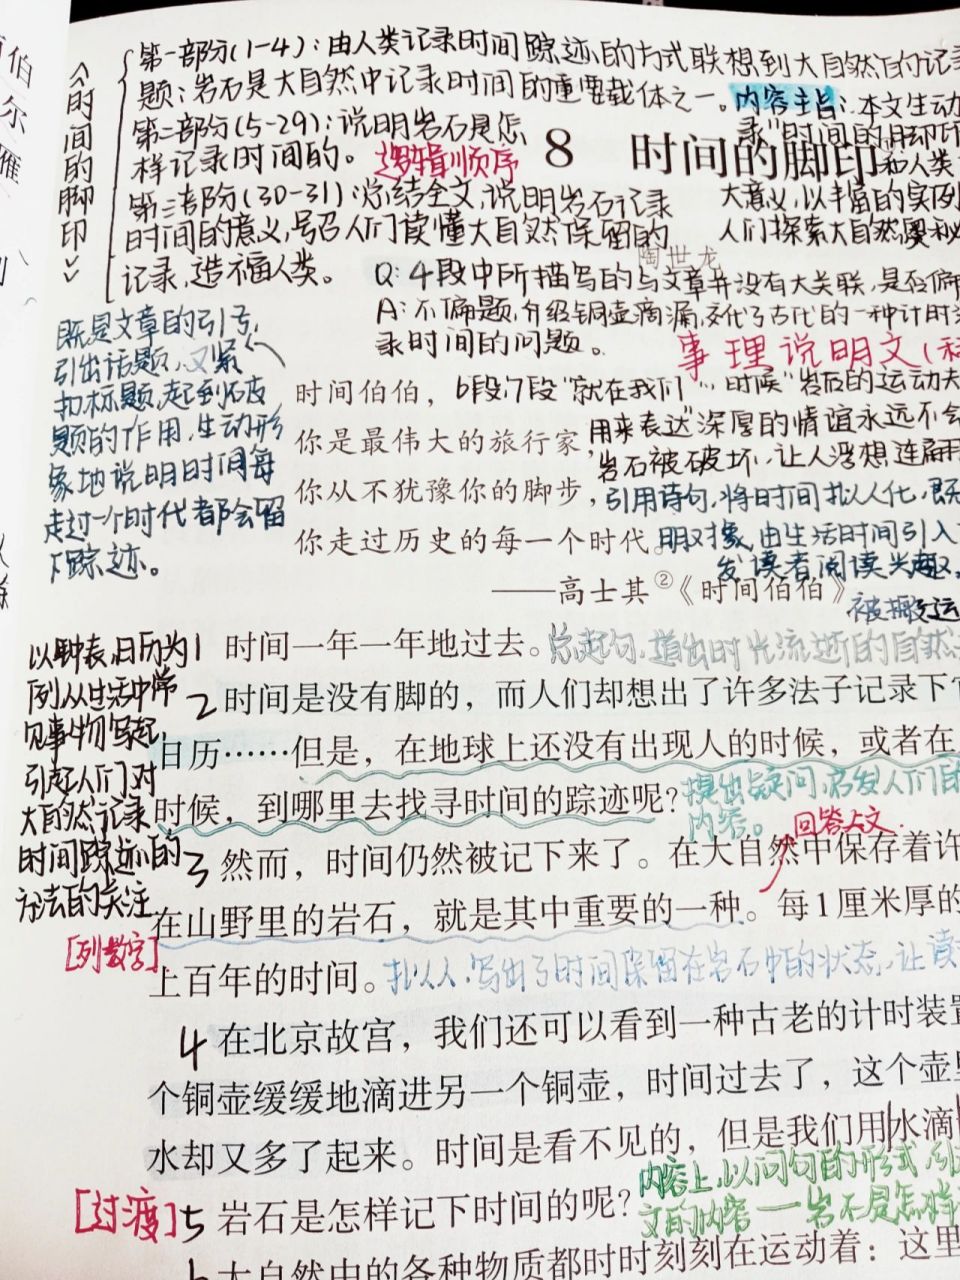 伯
尔
雁
《时间的脚印》
第一部分(1-4):由人类记录时间踪迹的方式联想到大自然的记录
题:岩石是大自然中记录时间的重要载体之一。
第二部分(5-29):说明岩石是怎
样记录时间的。 逻辑顺序
第三部分(30-31):总结全文,说明岩石记录
时间的意义,号召人们读懂大自然保留的
记录,造福人类。
内容主旨:本文生动
录"时间的脚印
和人类
大意义,以丰富的实例
人们探索大自然奥秘
8 时间的脚印
陶世龙
Q:4段中所描写的与文章并没有大关联,是否偏
A:不偏题,介绍铜壶滴漏,交代了古代的一种计时
录时间的问题。
事理说明文(科
既是文章的引子,
引出话题,又紧
扣标题,起到破
题的作用,生动形
象地说明时间每
走过一个时代都会留
下踪迹。
时间伯伯,
你是最伟大的旅行家,
你从不犹豫你的脚步,
你走过历史的每一个时代。
——高士其②《时间伯伯》
6段,7段"就在我们…时候"岩石的运动
用来表达"深厚的情谊永远不会
岩石被破坏,让人浮想连翩
引用诗句,将时间拟人化,既
明对象,由生活时间引入
发读者阅读兴趣。
被搬运
以钟表、日历为
例,从生活中常
见事物写起,
引起人们对
大自然记录
时间踪迹的
方法的关注
1 时间一年一年地过去。总起句,道出时光流逝的自然
2 时间是没有脚的,而人们却想出了许多法子记录下
日历……但是,在地球上还没有出现人的时候,或者在
时候,到哪里去找寻时间的踪迹呢?
提出疑问,启发人们
内容。
回答上文.
3 然而,时间仍然被记下来了。在大自然中保存着许
在山野里的岩石,就是其中重要的一种。每1厘米厚的
[列数字]
上百年的时间。拟人,写出了时间保留在岩石中的状态,让读
4 在北京故宫,我们还可以看到一种古老的计时装置
个铜壶缓缓地滴进另一个铜壶,时间过去了,这个壶
水却又多了起来。时间是看不见的,但是我们用水滴
[过渡] 5 岩石是怎样记下时间的呢?
内容上,以问句的形式,引
文的内容——岩石是怎样
6 大自然中的各种物质都时时刻刻在运动着:这里